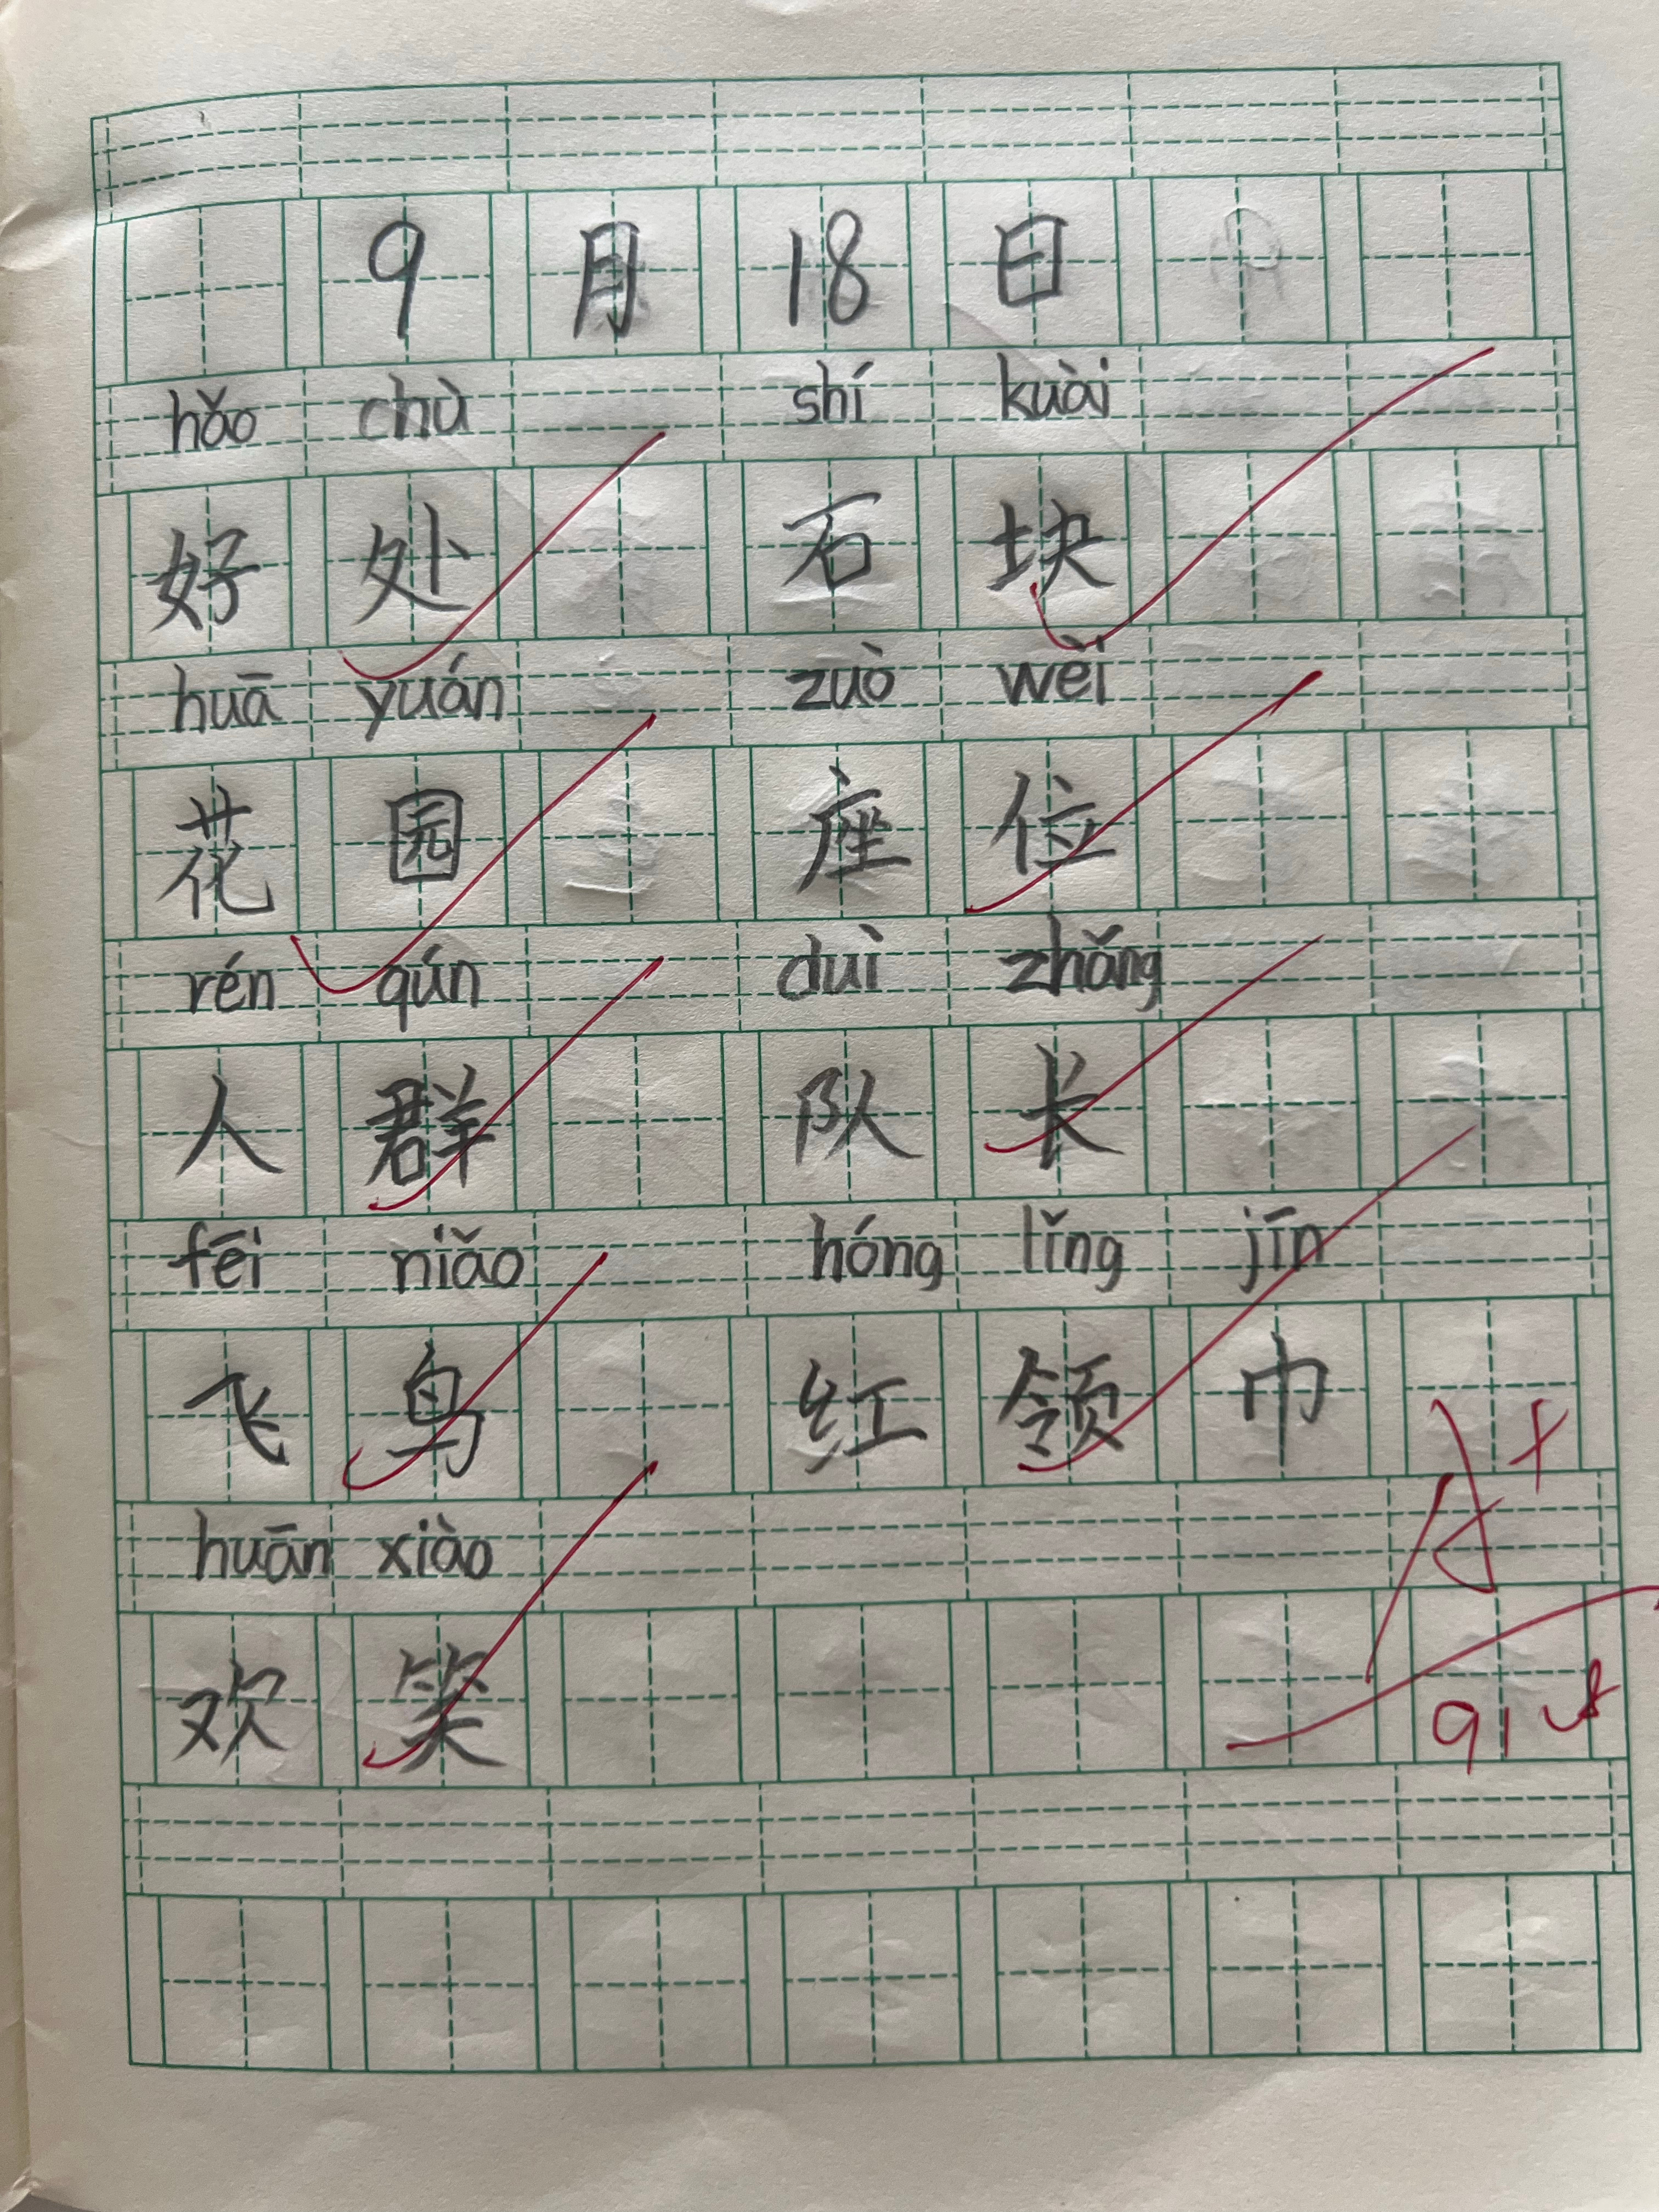 9 月 18 日
hǎo chù shí kuài
好 处 石 块
huā yuán zuò wèi
花 园 座 位
rén qún duì zhǎng
人 群 队 长
fēi niǎo hóng lǐng jīn
飞 鸟 红 领 巾
huān xiào
欢 笑
A+